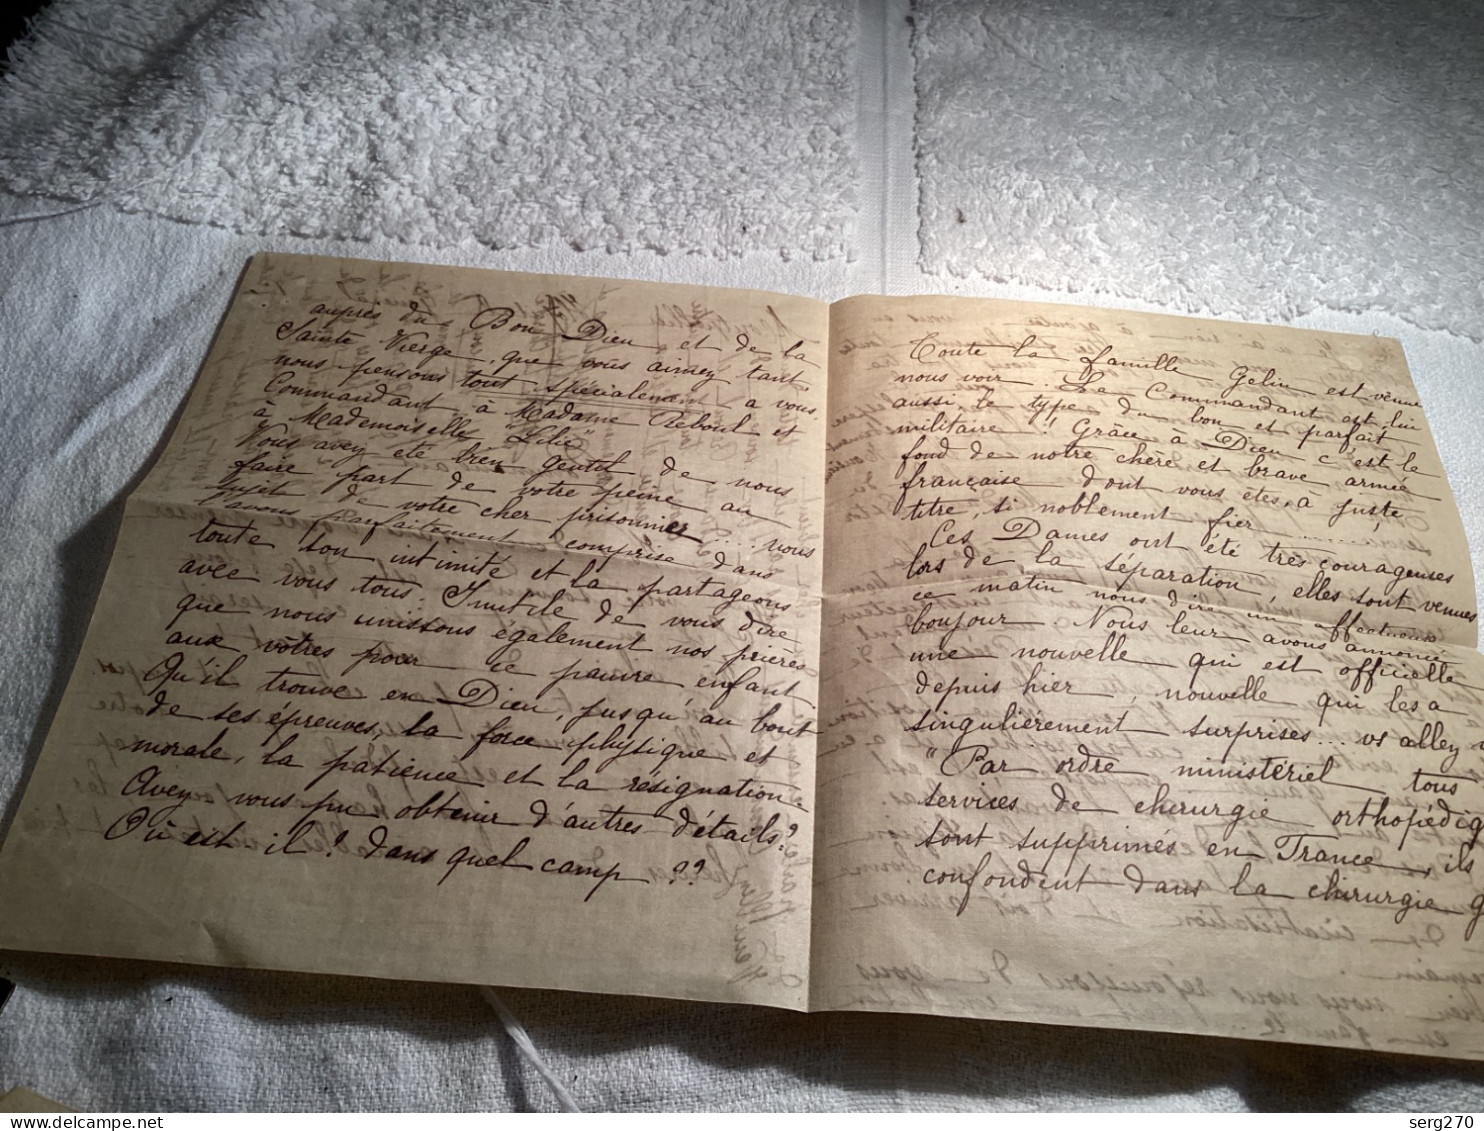 auprès du Bon Dieu et de la
Sainte Vierge, que vous aimez tant
nous pensons tout spécialement à vous,
Commandant.. à Madame Reboul et
à Mademoiselle "Lili"
Vous avez été bien gentil de nous
faire part de votre peine au
sujet de votre cher prisonnier.... nous
l'avons parfaitement comprise dans
toute son intimité et la partageons
avec vous tous. Inutile de vous dire
que nous unissons également nos prières
aux vôtres pour ce pauvre enfant
Qu'il trouve en Dieu, jusqu'au bout
de ses épreuves, la force physique et
morale, la patience et la résignation.
Avez vous pu obtenir d'autres détails?
Où est il? dans quel camp??
Toute la famille Gelin est venue
nous voir. Le Commandant est lui
aussi le type du bon et parfait
militaire! Grâce à Dieu c'est le
fond de notre chère et brave armée
française dont vous êtes, à juste
titre, si noblement fier........
Ces Dames ont été très courageuses
lors de la séparation, elles sont venues
ce matin nous dire un affectueux
bonjour Nous leur avons annoncé
une nouvelle qui est officielle
depuis hier, nouvelle qui les a
singulièrement surprises... vs allez
"Par ordre ministériel tous
services de chirurgie orthopédiq
sont supprimés en France, ils
confondent dans la chirurgie g
serg270